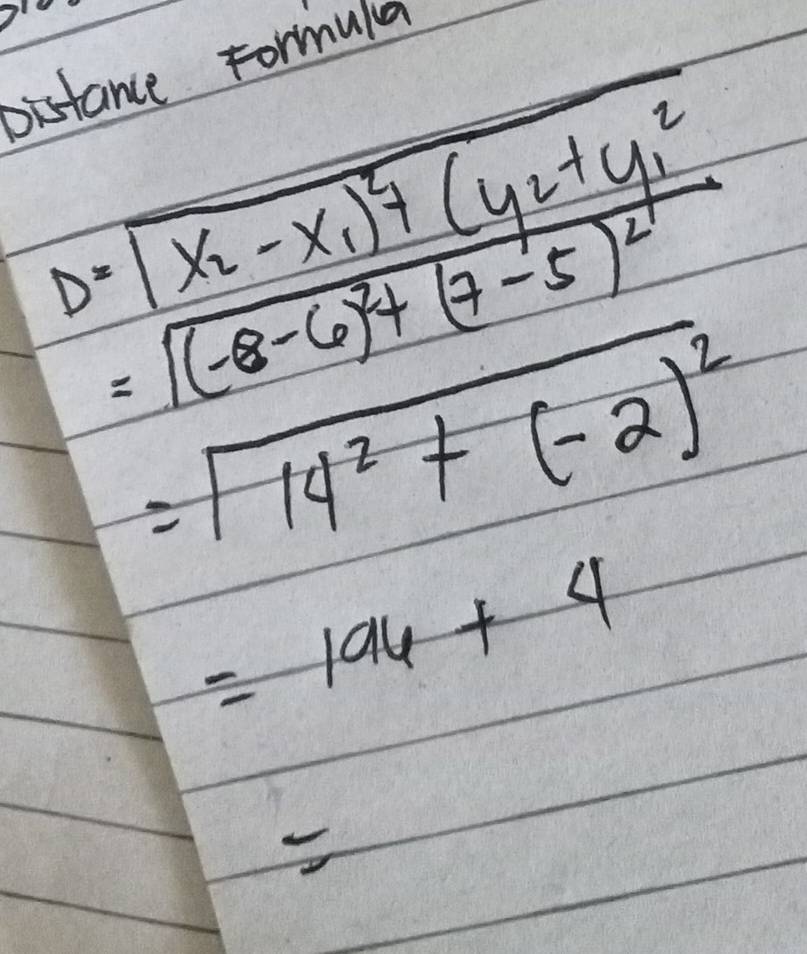 Distance Formula
D = √(x₂ - x₁)² + (y₂ + y₁²
= √(-8 - 6)² + (7 - 5)²
= √14² + (-2)²
= 196 + 4
=